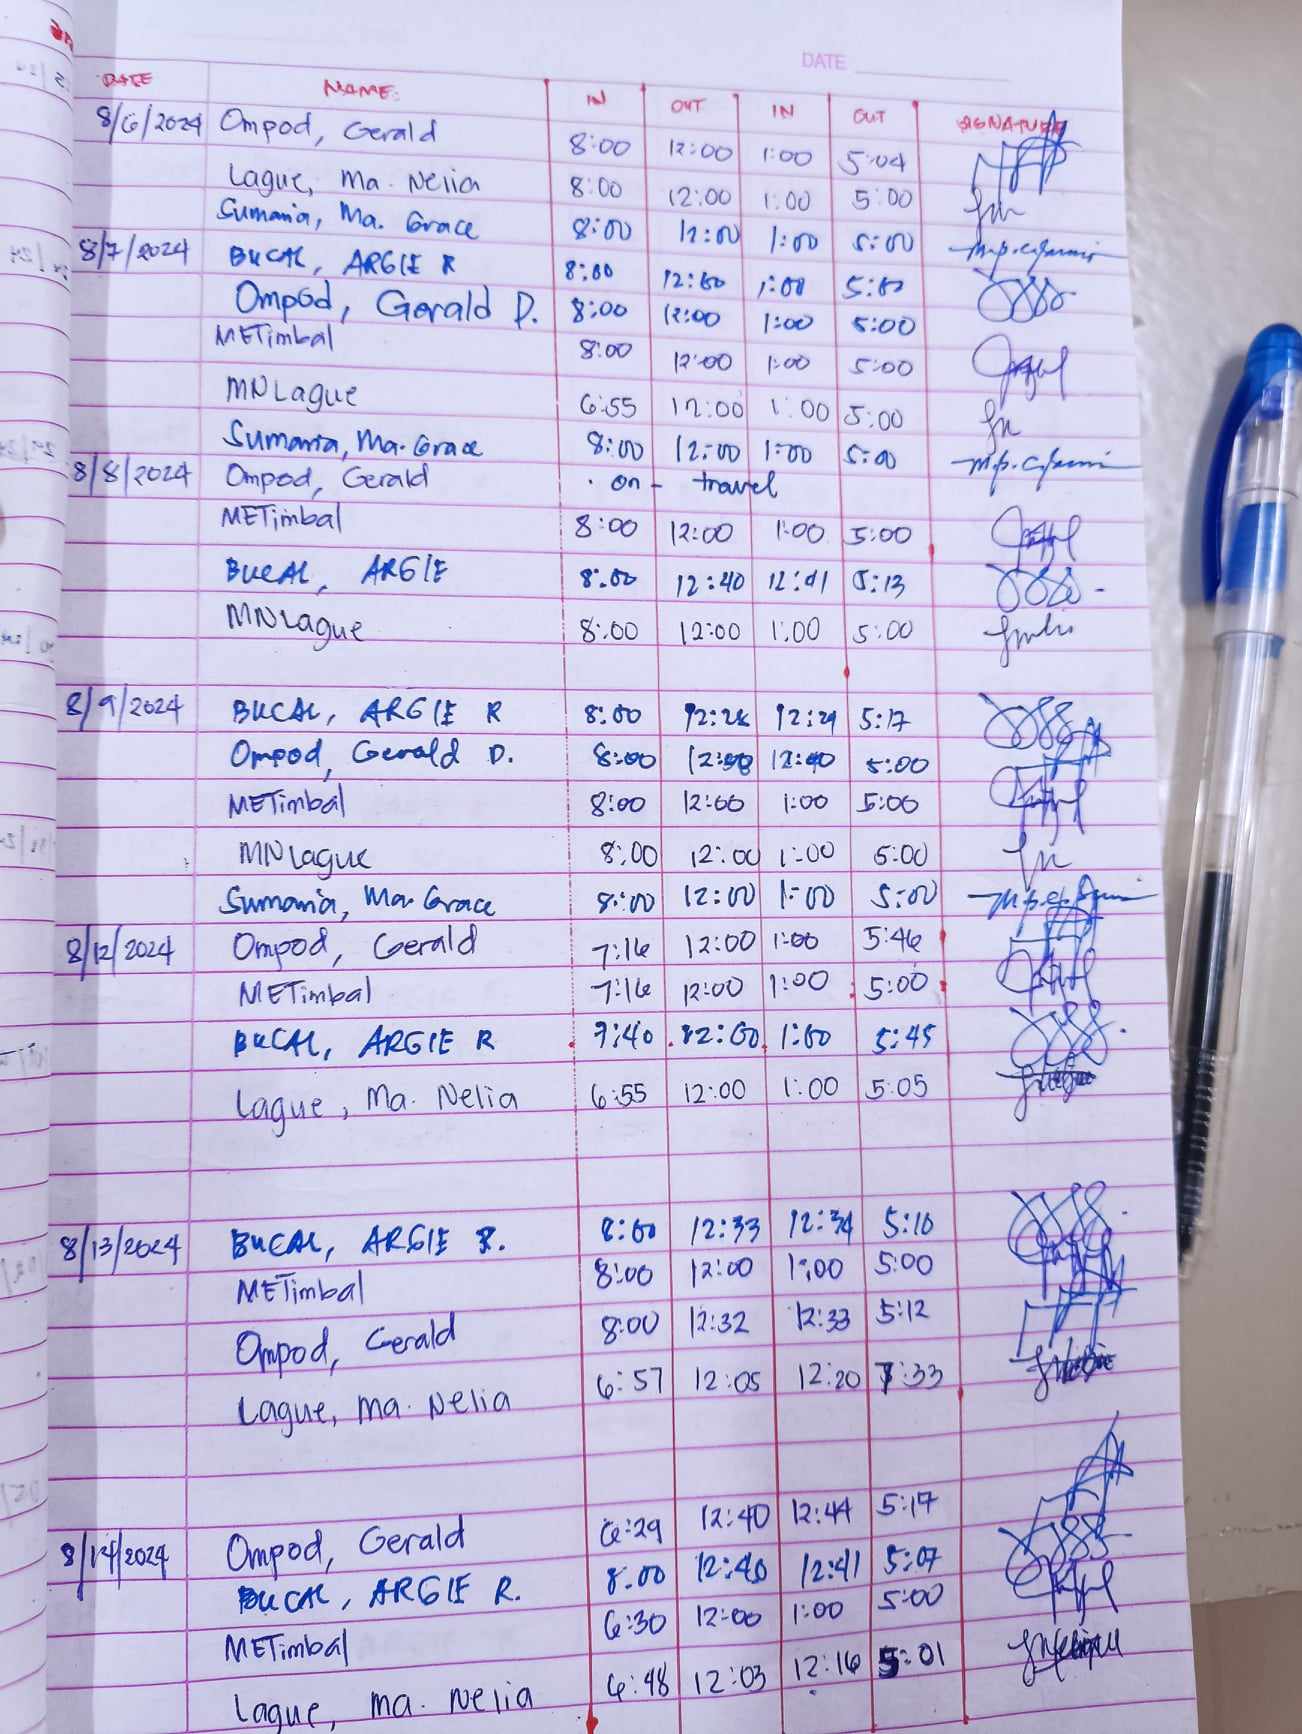 DATE
DATE NAME: IN OUT IN OUT SIGNATURE
8/6/2024 Ompod, Gerald 8:00 12:00 1:00 5:04
Lague, Ma. Nelia 8:00 12:00 1:00 5:00
Sumania, Ma. Grace 8:00 12:00 1:00 5:00
8/7/2024 BUCAL, ARGIE R 8:00 12:00 1:00 5:00
Ompod, Gerald D. 8:00 12:00 1:00 5:00
METimbal 8:00 12:00 1:00 5:00
MNLague 6:55 12:00 1:00 5:00
Sumania, Ma. Grace 8:00 12:00 1:00 5:00
8/8/2024 Ompod, Gerald on - travel
METimbal 8:00 12:00 1:00 5:00
BUCAL, ARGIE 8:00 12:40 12:41 5:13
MNLague 8:00 12:00 1:00 5:00
8/9/2024 BUCAL, ARGIE R 8:00 12:28 12:29 5:17
Ompod, Gerald D. 8:00 12:40 5:00
METimbal 8:00 12:00 1:00 5:00
MNLague 8:00 12:00 1:00 5:00
Sumania, Ma. Grace 8:00 12:00 1:00 5:00
8/12/2024 Ompod, Gerald 7:16 12:00 1:00 5:46
METimbal 7:16 12:00 1:00 5:00
BUCAL, ARGIE R 7:40 12:00 1:00 5:45
Lague, Ma. Nelia 6:55 12:00 1:00 5:05
8/13/2024 BUCAL, ARGIE R. 8:00 12:33 12:34 5:10
METimbal 8:00 12:00 1:00 5:00
Ompod, Gerald 8:00 12:32 12:33 5:12
Lague, Ma. Nelia 6:57 12:05 12:20 7:33
8/14/2024 Ompod, Gerald 6:29 12:40 12:44 5:17
BUCAL, ARGIE R. 8:00 12:40 12:41 5:07
METimbal 6:30 12:00 1:00 5:00
Lague, Ma. Nelia 6:48 12:03 12:16 5:01